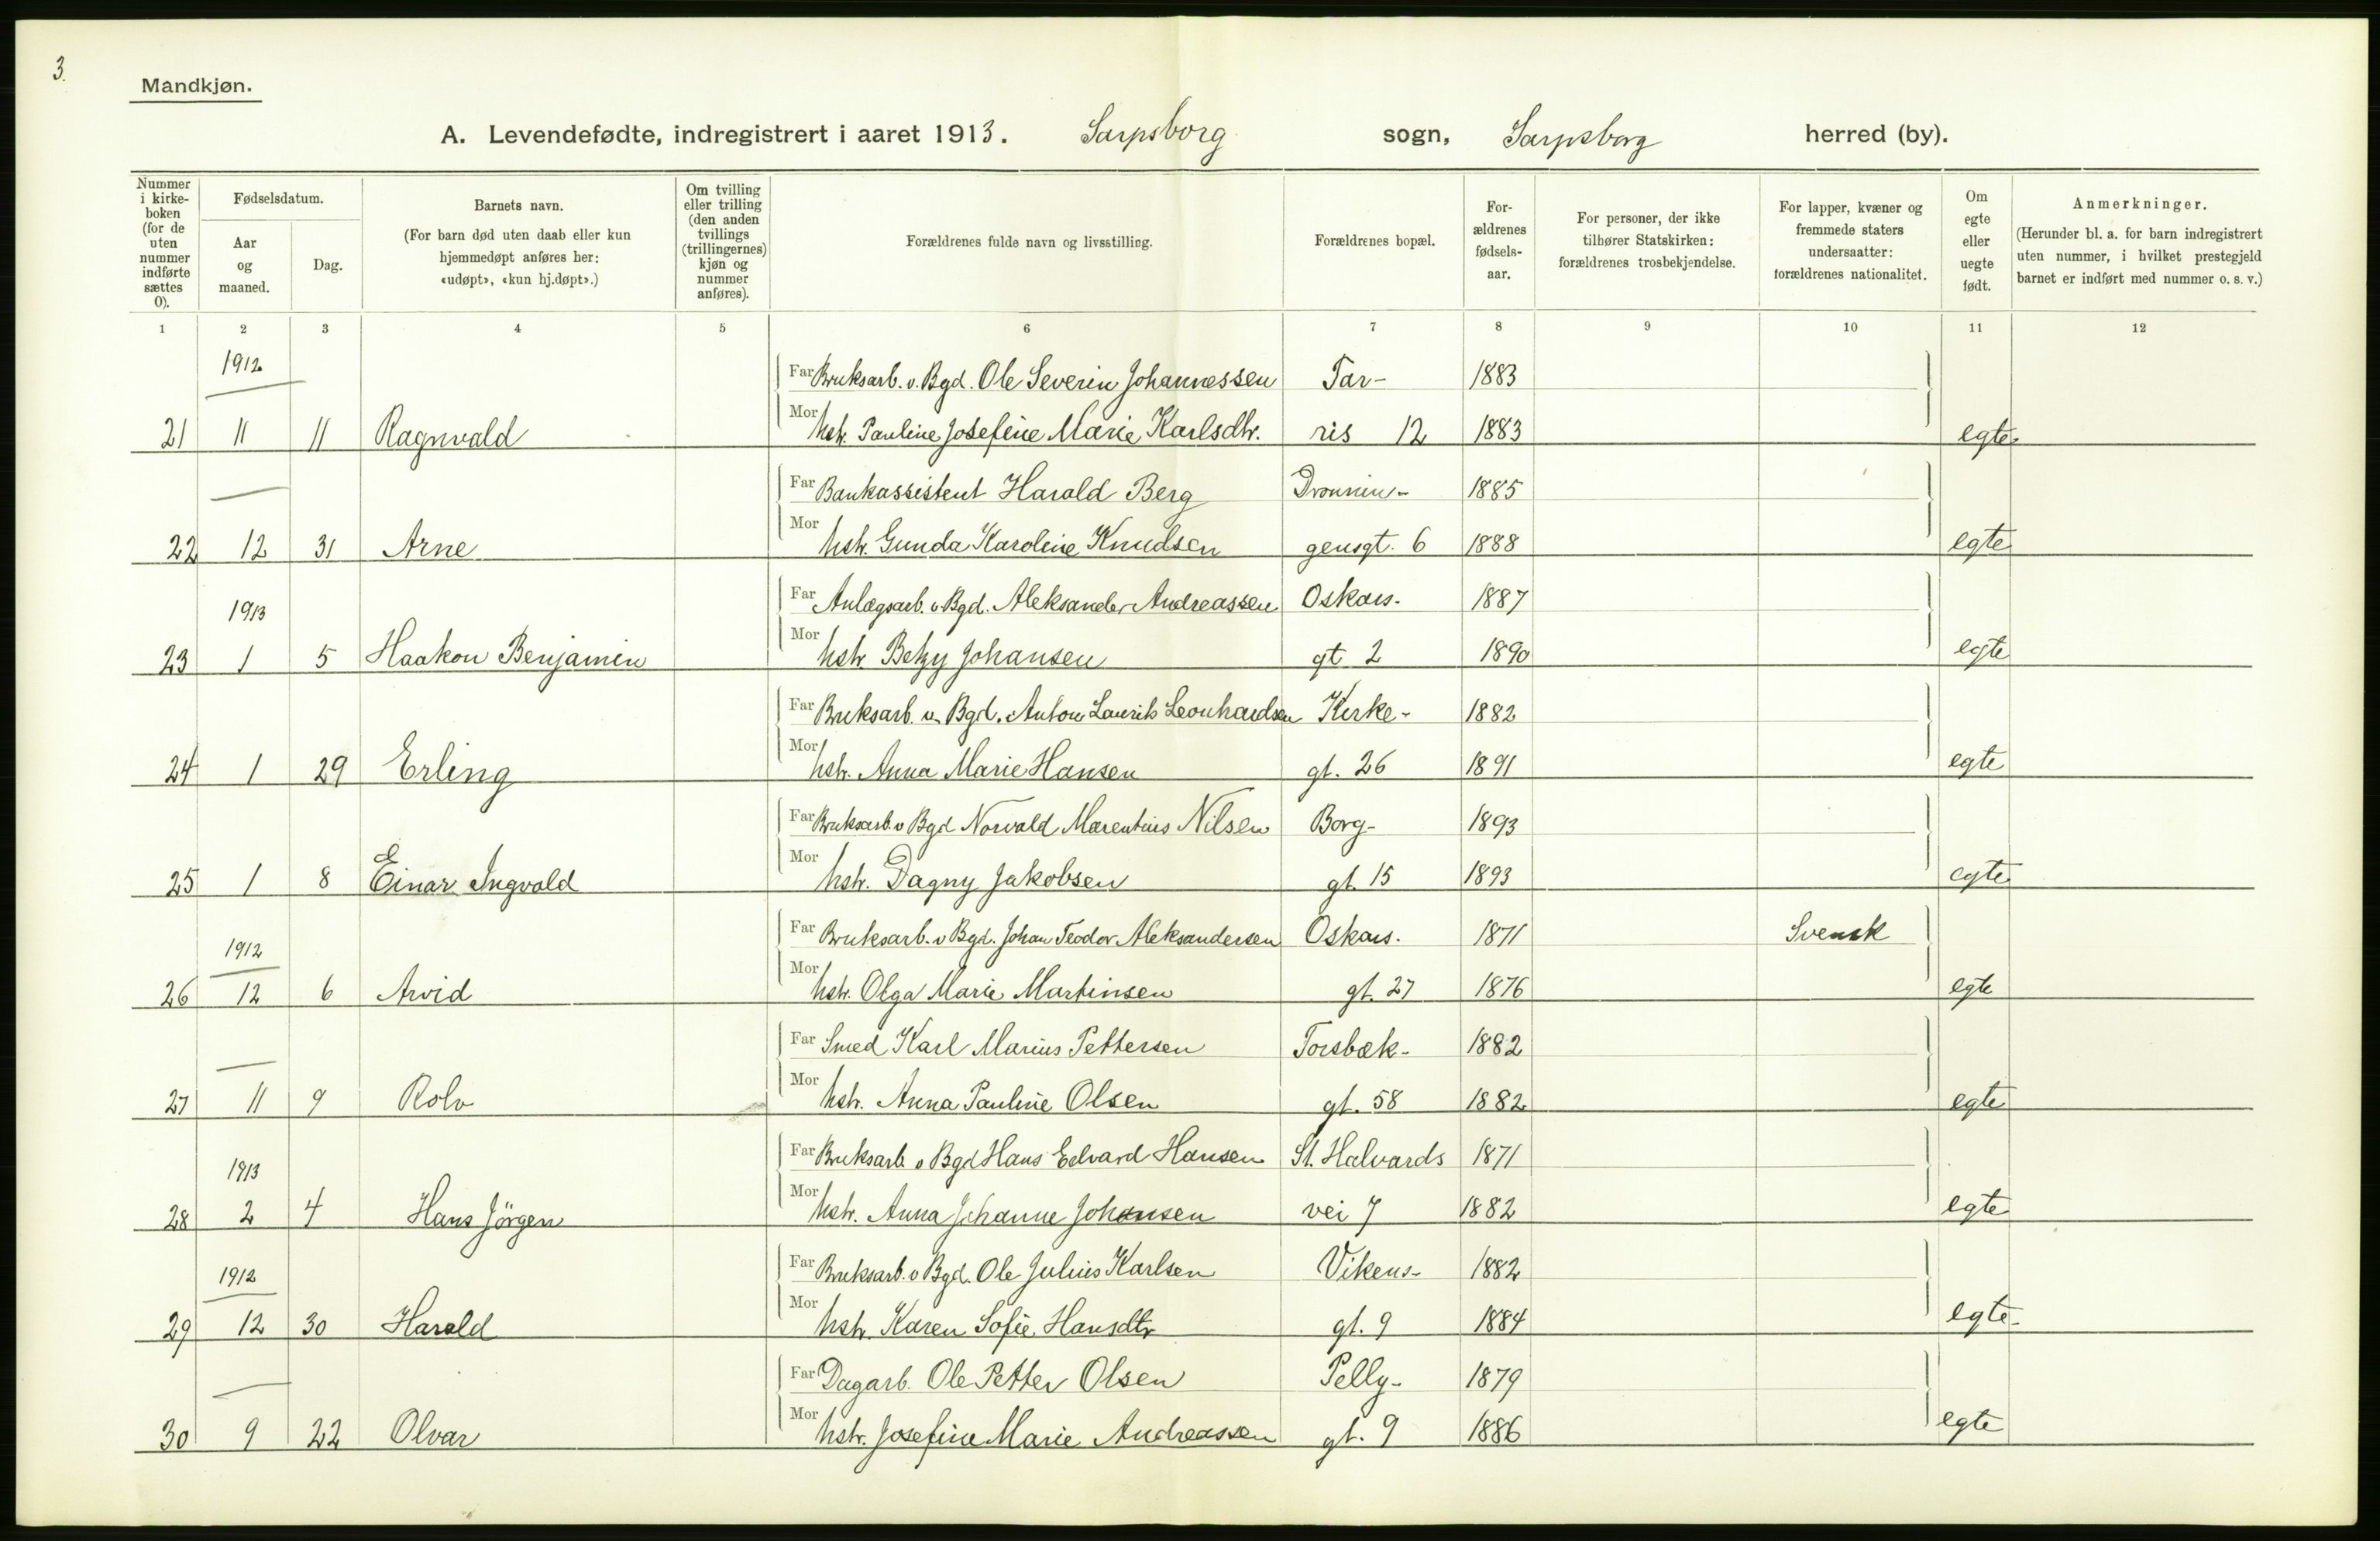 3.
Mandkjøn.
A. Levendefødte, indregistrert i aaret 1913. Sarpsborg sogn, Sarpsborg herred (by).
Nummer i kirke- boken (for de uten nummer indførte sættes 0).
Fødselsdatum.
Aar og maaned.
Dag.
Barnets navn.
(For barn død uten daab eller kun hjemmedøpt anføres her: «udøpt», «kun hj.døpt».)
Om tvilling eller trilling (den anden tvillings (trillingernes) kjøn og nummer anføres).
Forældrenes fulde navn og livsstilling.
Forældrenes bopæl.
For- ældrenes fødsels- aar.
For personer, der ikke tilhører Statskirken: forældrenes trosbekjendelse.
For lapper, kvæner og fremmede staters undersaatter: forældrenes nationalitet.
Om egte eller uegte født.
Anmerkninger.
(Herunder bl. a. for barn indregistrert uten nummer, i hvilket prestegjeld barnet er indført med nummer o. s. v.)
1 2 3 4 5 6 7 8 9 10 11 12
1912 Far Bruksarb. v. Bgd. Ole Severin Johannessen Tar- 1883
21 11 11 Ragnvald Mor hstr. Pauline Josefine Marie Karlsdtr. ris 12 1883 egte
— Far Bankassistent Harald Berg Dronnin- 1885
22 12 31 Arne Mor hstr. Gunda Karoline Knudsen gensgt. 6 1888 egte
1913 Far Anlægsarb. v Bgd. Aleksander Andreassen Oskars- 1887
23 1 5 Haakon Benjamin Mor hstr Betzy Johansen gt 2 1890 egte
Far Bruksarb. v. Bgd. Anton Laurits Leonhardsen Kirke- 1882
24 1 29 Erling Mor hstr. Anna Marie Hansen gt. 26 1891 egte
Far Bruksarb. v Bgd Norvald Marentius Nilsen Borg- 1893
25 1 8 Einar Ingvald Mor hstr. Dagny Jakobsen gt. 15 1893 egte
1912 Far Bruksarb. v Bgd. Johan Teodor Aleksandersen Oskars. 1871 Svensk
26 12 6 Arvid Mor hstr. Olga Marie Martinsen gt. 27 1876 egte
— Far Smed Karl Marius Pettersen Torsbæk- 1882
27 11 9 Rolv Mor hstr. Anna Pauline Olsen gt. 58 1882 egte
1913 Far Bruksarb v Bgd Hans Edvard Hansen St. Halvards 1871
28 2 4 Hans Jörgen Mor hstr. Anna Johanne Johansen vei 7 1882 egte
1912 Far Bruksarb. v Bgd. Ole Julius Karlsen Vikens- 1882
29 12 30 Harald Mor hstr. Karen Sofie Hansdtr gt. 9 1884 egte
— Far Dagarb. Ole Petter Olsen Pelly- 1879
30 9 22 Olvar Mor hstr. Josefine Marie Andreassen gt. 9 1886 egte